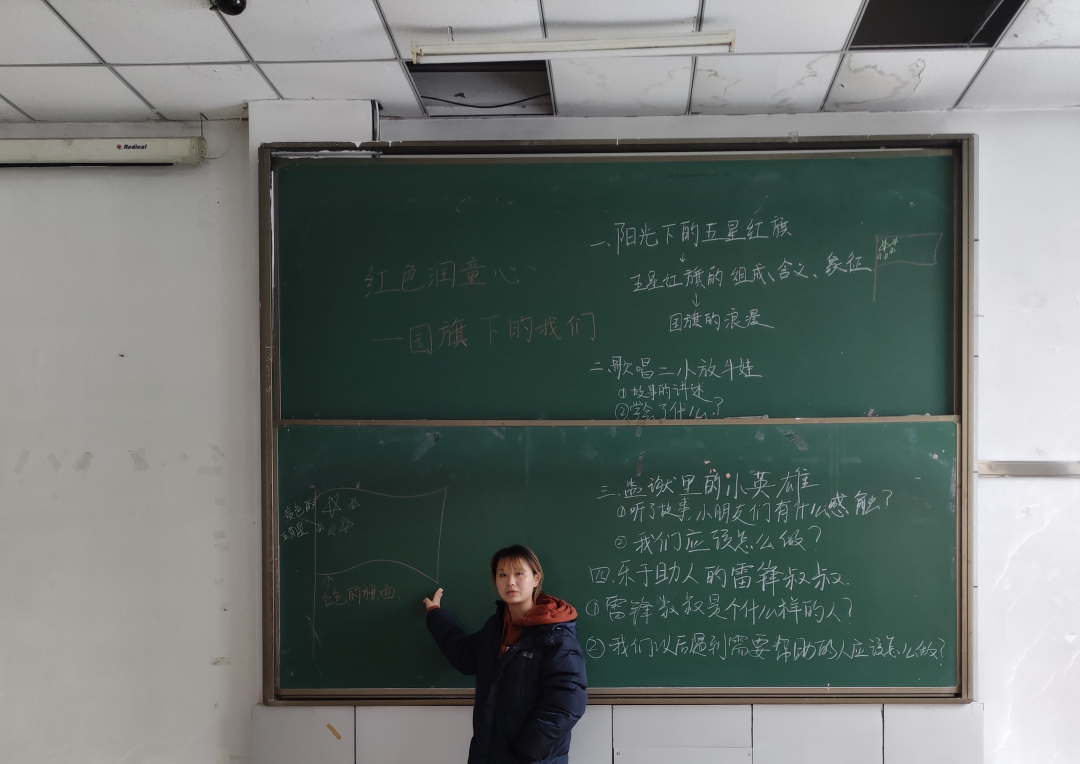 Redleaf
红色润童心
—国旗下的我们
一、阳光下的五星红旗
↓
五星红旗的组成、含义、象征
↓
国旗的浪漫
二、歌唱二小放牛娃
①故事的讲述
②学会了什么？
三、监狱里的小英雄
①听了故事，小朋友们有什么感触？
②我们应该怎么做？
四、乐于助人的雷锋叔叔.
①雷锋叔叔是个什么样的人？
②我们以后遇到需要帮助的人应该怎么做？
黄色的
五角星
红色的旗面